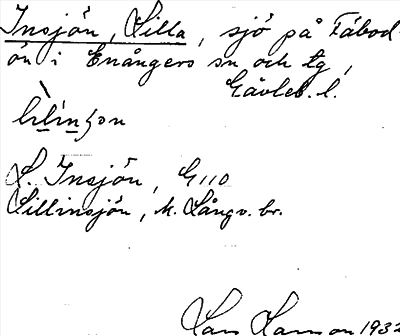 Insjön, Lilla, sjö på Fäbod-
ön i Enångers sn och tg,
Gävleb. l.
L. Insjön, G110
Lillinsjön, M. Långv. br.
Lars Larsson 1932